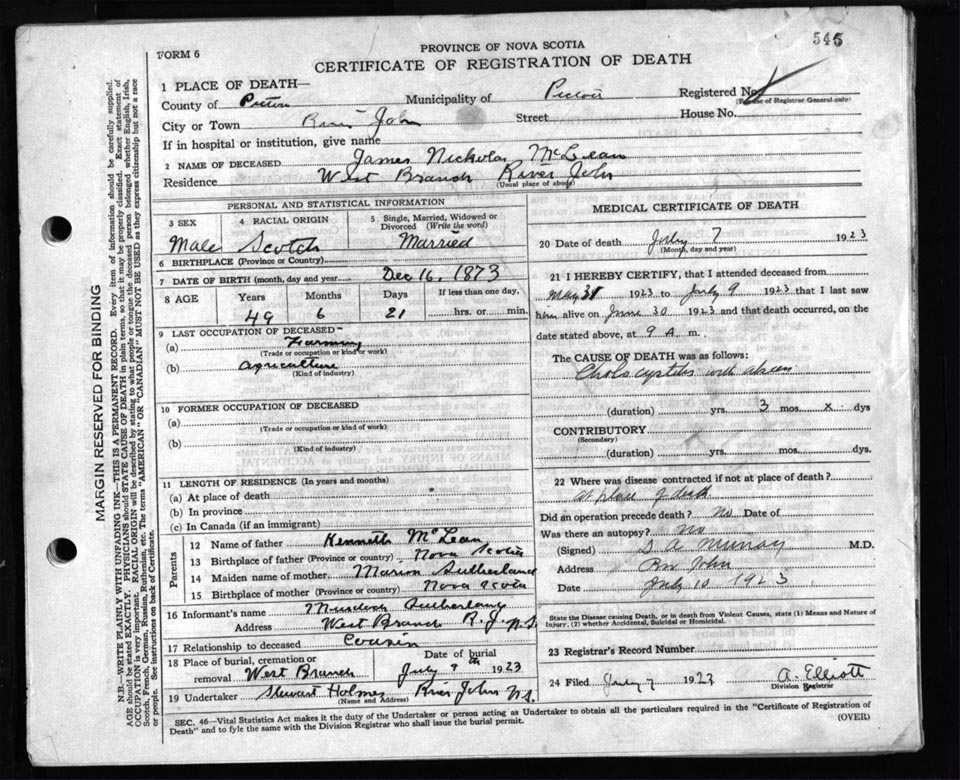 545
FORM 6
PROVINCE OF NOVA SCOTIA
CERTIFICATE OF REGISTRATION OF DEATH
1 PLACE OF DEATH—
County of Pictou Municipality of Pictou Registered No.
(For use of Registrar General only)
City or Town River John Street House No.
If in hospital or institution, give name
2 NAME OF DECEASED James Nickolas McLean
Residence West Branch River John
(Usual place of abode)
PERSONAL AND STATISTICAL INFORMATION
3 SEX 4 RACIAL ORIGIN 5 Single, Married, Widowed or Divorced (Write the word)
Male Scotch Married
6 BIRTHPLACE (Province or Country)
7 DATE OF BIRTH (month, day and year) Dec 16, 1873
8 AGE Years Months Days If less than one day,
49 6 21 hrs. or min.
9 LAST OCCUPATION OF DECEASED—
(a) Farming
(Trade or occupation or kind of work)
(b) Agriculture
(Kind of industry)
10 FORMER OCCUPATION OF DECEASED
(a)
(Trade or occupation or kind of work)
(b)
(Kind of industry)
11 LENGTH OF RESIDENCE (In years and months)
(a) At place of death
(b) In province
(c) In Canada (if an immigrant)
Parents
12 Name of father Kenneth McLean
13 Birthplace of father (Province or country) Nova Scotia
14 Maiden name of mother Marion Sutherland
15 Birthplace of mother (Province or country) Nova Scotia
16 Informant's name Murdoch Sutherland
Address West Branch R. J. N.S.
17 Relationship to deceased Cousin
18 Place of burial, cremation or removal West Branch Date of burial July 9th 1923
19 Undertaker Stewart Holmes River John N.S.
(Name and Address)
MEDICAL CERTIFICATE OF DEATH
20 Date of death July 7 1923
(Month, day and year)
21 I HEREBY CERTIFY, that I attended deceased from
May 31 1923 to July 9 1923 that I last saw
him alive on June 30 1923 and that death occurred, on the
date stated above, at 9 A m.
The CAUSE OF DEATH was as follows:
Cholecystitis with abscess
(duration) yrs. 3 mos. x dys
CONTRIBUTORY
(Secondary)
(duration) yrs. mos. dys.
22 Where was disease contracted if not at place of death?
At place of death
Did an operation precede death? No Date of
Was there an autopsy? No
(Signed) Murray M.D.
Address Riv John
Date July 10 1923
State the Disease causing Death, or in death from Violent Causes, state (1) Means and Nature of
Injury, (2) whether Accidental, Suicidal or Homicidal.
23 Registrar's Record Number
24 Filed July 7 1923 A. Elliott
Division Registrar
SEC. 46—Vital Statistics Act makes it the duty of the Undertaker or person acting as Undertaker to obtain all the particulars required in the "Certificate of Registration of
Death" and to fyle the same with the Division Registrar who shall issue the burial permit. (OVER)
MARGIN RESERVED FOR BINDING
N.B.—WRITE PLAINLY WITH UNFADING INK—THIS IS A PERMANENT RECORD. Every item of information should be carefully supplied.
AGE should be stated EXACTLY. PHYSICIANS should STATE CAUSE OF DEATH in plain terms, so that it may be properly classified. Exact statement of
OCCUPATION is very important. RACIAL ORIGIN will be described by stating to what people or tongue the deceased person belonged whether English, Irish,
Scotch, French, German, Russian, Ruthenian, etc. The terms "AMERICAN" OR "CANADIAN" MUST NOT BE USED as they express citizenship but not a race
or people. See instructions on back of Certificate.